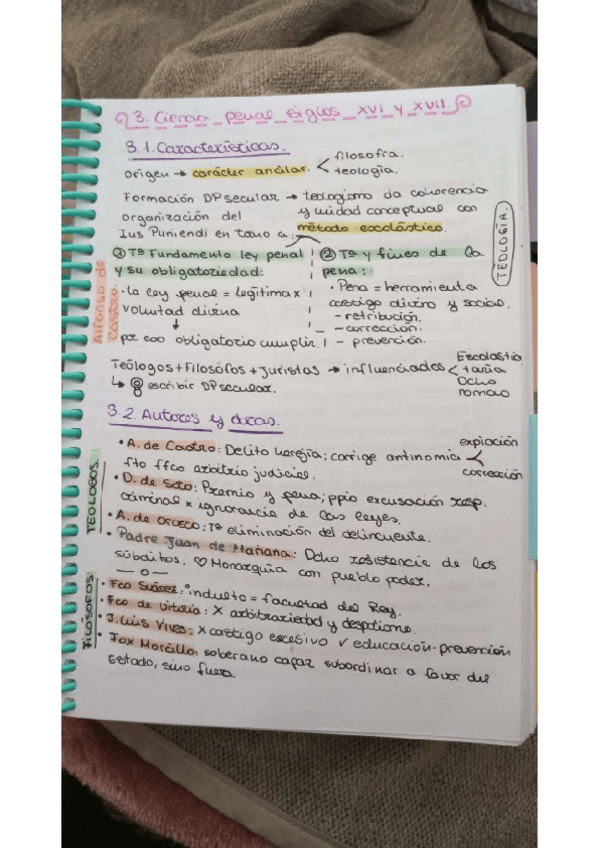 3. Ciencia penal siglos XVI y XVII.
3.1. Características.
origen → carácter ancilar. < filosofía.
teología.
Formación DP secular → teologismo da coherencia
organización del y unidad conceptual con
Ius Puniendi en torno a: método escolástico.
TEOLOGÍA.
Alfonso de Castro:
① Tª Fundamento ley penal
y su obligatoriedad:
· la ley penal = legítima x
voluntad divina
↓
px eso obligatorio cumplir.
② Tª y fines de la
pena:
· Pena = herramienta
castigo divino y social.
- retribución.
- corrección.
- prevención.
Teólogos + Filosófos + Juristas → influenciados < Escolastica
tardía
Dcho
romano
↳ escribir DP secular.
3.2. Autores y obras.
TEOLOGOS.
· A. de Castro: Delito herejía; corrige antinomia < expiación
corrección
fto ffco arbitrio judicial.
· D. de Soto: Premio y pena; ppio excusación resp.
criminal x ignorancia de las leyes.
· A. de Orozco: Tª eliminación del delincuente.
· Padre Juan de Mariana: Dcho resistencia de los
súbditos. ♡ Monarquía con pueblo poder.
— o —
FILÓSOFOS
· Fco Suárez: indulto = facultad del Rey.
· Fco de Vitoria: X arbitrariedad y despotismo.
· J. Luis Vives: X castigo excesivo ✓ educación-prevención
· Fox Morcillo: soberano capaz subordinar a favor del
Estado, sino fuera.